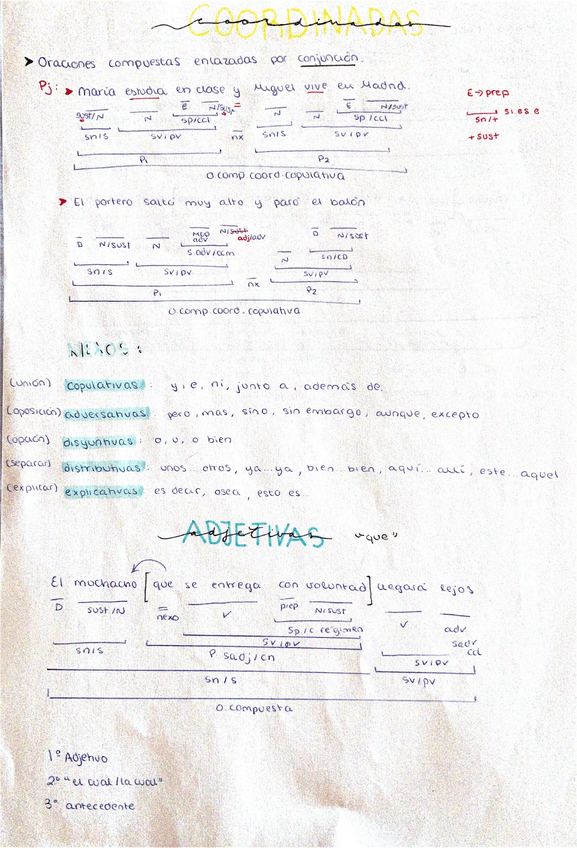 COORDINADAS
coordinadas
➤ Oraciones compuestas enlazadas por conjunción.
Pj: ➤ María estudia en clase y Miguel vive en Madrid.
E → prep
sust/N N E N/sust N N E N/sust
sn/+ si es e
sp/ccl sp/ccl
+ sust
sn/s sv/pv nx sn/s sv/pv
P1 P2
O.comp.coord.copulativa
➤ El portero saltó muy alto y paró el balón
D N/sust N MOD adv N/sust adj/adv D N/sust
s.adv/ccm N sn/CD
sn/s sv/pv nx sv/pv
P1 P2
O.comp.coord.copulativa
NEXOS:
(unión) copulativas: y, e, ni, junto a, además de,
(oposición) adversativas: pero, mas, sino, sin embargo, aunque, excepto
(opción) disyuntivas: o, u, o bien
(separar) distributivas: unos...otros, ya...ya, bien...bien, aquí...allí, este...aquel
(explicar) explicativas: es decir, osea, esto es...
ADJETIVAS "que"
adjetivas
El muchacho [que se entrega con voluntad] llegará lejos
D sust/N nexo V prep N/sust V adv
sp/c.régimen sadv
sn/s sv/pv ccl
P sadj/cn sv/pv
sn/s sv/pv
O.compuesta
1º Adjetivo
2º "el cual/la cual"
3º antecedente